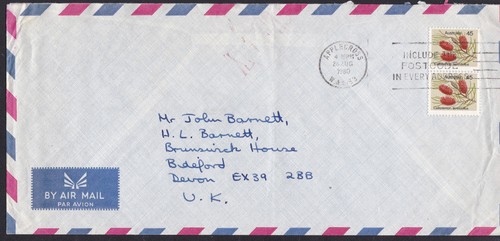 Australia 45
Australia 45
APPLECROSS
1980
W.A. 6153
INCLUDE
POSTCODE
IN EVERY ADDRESS
Mr John Barnett,
H.L. Barnett,
Brunswick House
Bideford
Devon EX39 2BB
U.K.
BY AIR MAIL
PAR AVION